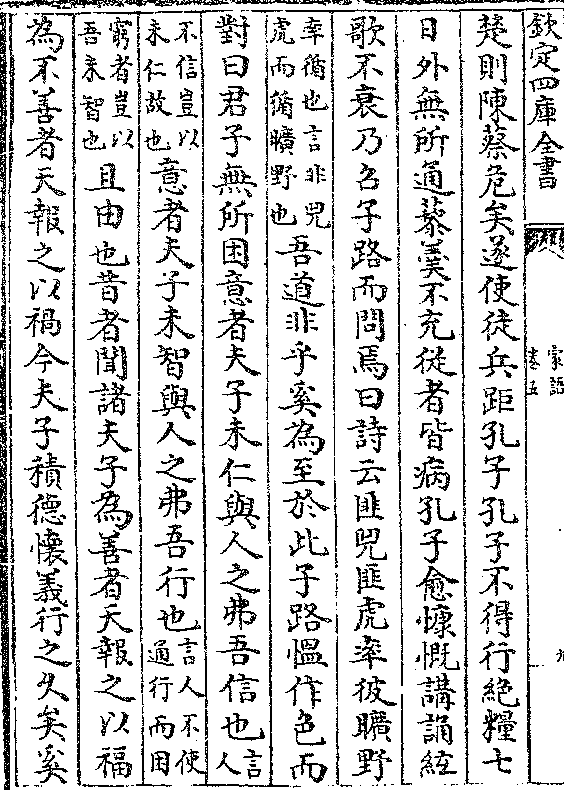 欽定四庫全書
家語
卷五
九
楚則陳蔡危矣遂使徒兵距孔子孔子不得行絶糧七
日外無所通藜羮不充從者皆病孔子愈慷慨講誦絃
歌不衰乃召子路而問焉曰詩云匪兕匪虎率彼曠野
率循也言非兕
虎而循曠野也
吾道非乎奚為至於此子路愠作色而
對曰君子無所困意者夫子未仁與人之弗吾信也
言人
不信豈以
未仁故也
意者夫子未智與人之弗吾行也
言人不使
通行而困
窮者豈以
吾未智也
且由也昔者聞諸夫子為善者天報之以福
為不善者天報之以禍今夫子積德懷義行之久矣奚